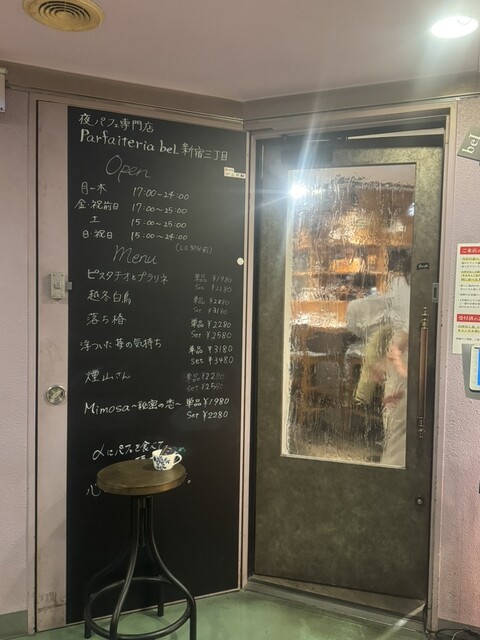 夜パフェ専門店
Parfaiteria beL 新宿三丁目
Open
月-木 17:00~24:00
金・祝前日 17:00~25:00
土 15:00~25:00
日・祝日 15:00~24:00
(L.O.30分前)
Menu
ピスタチオとプラリネ 単品 ¥1980
Set ¥2280
越冬白鳥 単品
Set ¥3180
落ち椿 単品 ¥2280
Set ¥2580
浮ついた苺の気持ち 単品 ¥3180
set ¥3480
煙山さん 単品 ¥2280
set ¥2580
Mimosa~秘蜜の恋~ 単品 ¥1980
Set ¥2280
〆にパフェを食べて
心
beL